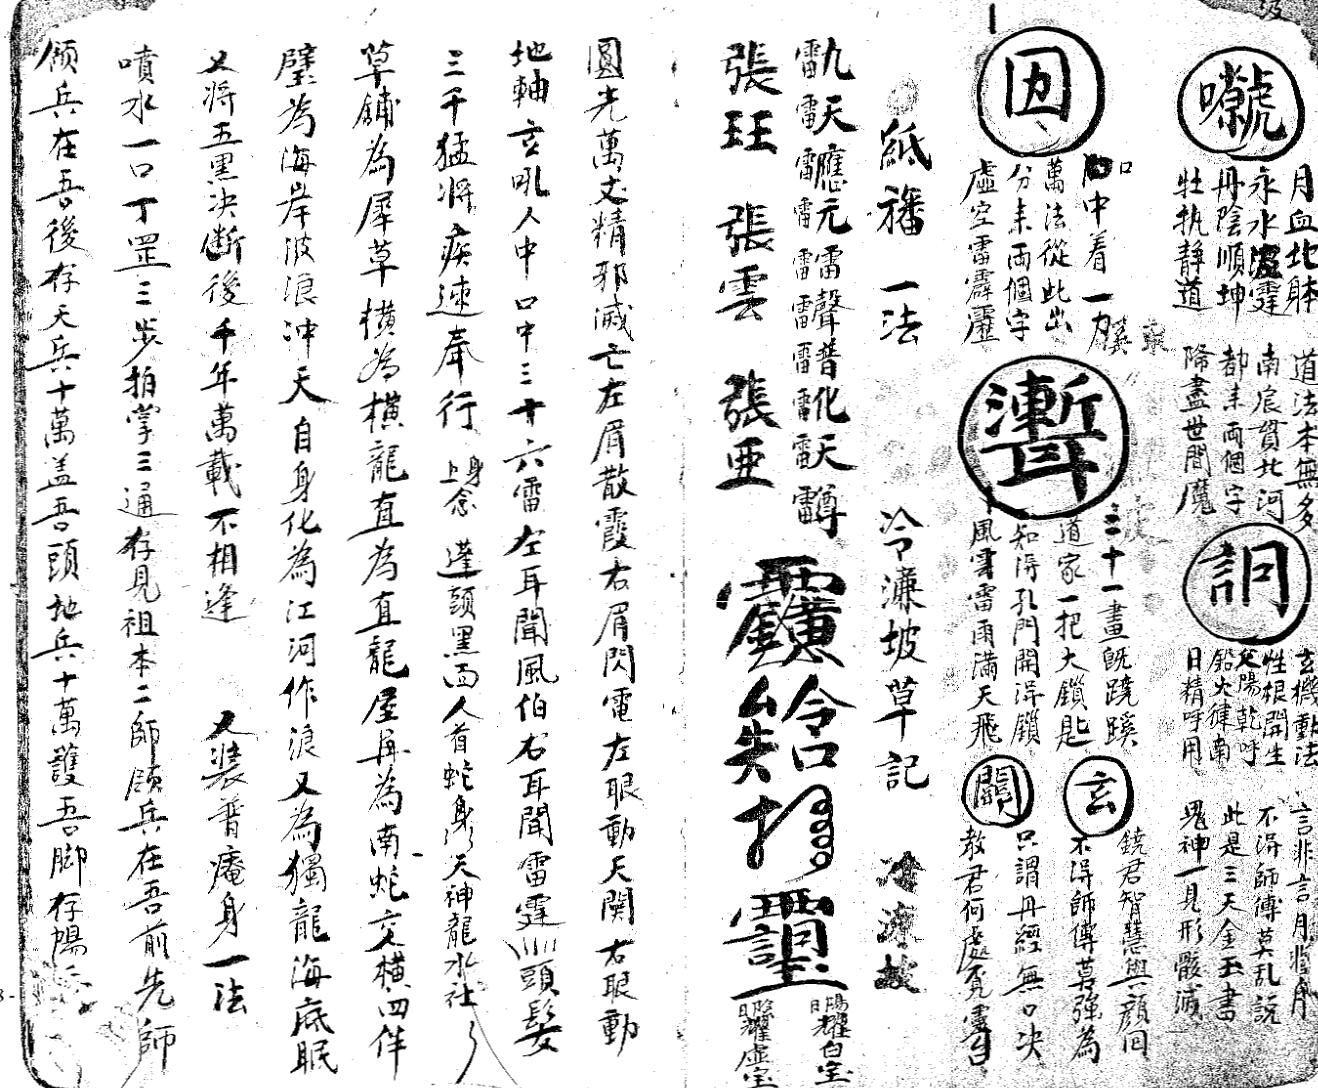 月血地躰
永水混霆
丹陰順坤
牡执静道
道法本無多
南辰貫北河
都来両個字
降盡世間魔
訶
玄機動法
性根開生
父陽乾呼
鉛火律南
日精呼用
言非言月非月
不淂師傅莫乱説
此是三天金玉書
鬼神一見形骸滅
囟
口中着一力
萬法從此出
分来両個字
虚空雷霹靂
三十一畫既蹺蹊
道家一把大鎖匙
知淂孔門開淂鎖
風雲雷雨满天飛
玄
鐃君智慧與顔回
不淂師傅莫強為
只謂丹經無口决
教君何處覓靈
紙旛一法 冷濂坡草記
九天應元雷聲普化天尊
雷雷雷雷雷雷雷雷雷
張珏 張雲 張亜
圓光萬丈精邪滅亡左眉散霞右眉閃電左眼動天関右眼動
地軸玄吼人中口中三十六雷左耳聞風伯右耳聞雷霆頭髮
三千猛將疾速奉行 上身念 蓬頭黑面人首蛇身天神龍水社
草鋪為犀草橫為橫龍直為直龍屋再為南蛇交橫四伴
壁為海岸波浪冲天自身化為江河作浪又為獨龍海底眠
又將五黑决断後千年萬載不相逢 又装普庵身一法
噴水一口丁罡三步拍掌三通存見祖本二師領兵在吾前先師
領兵在吾後存天兵十萬盖吾頭地兵十萬護吾脚存陽兵